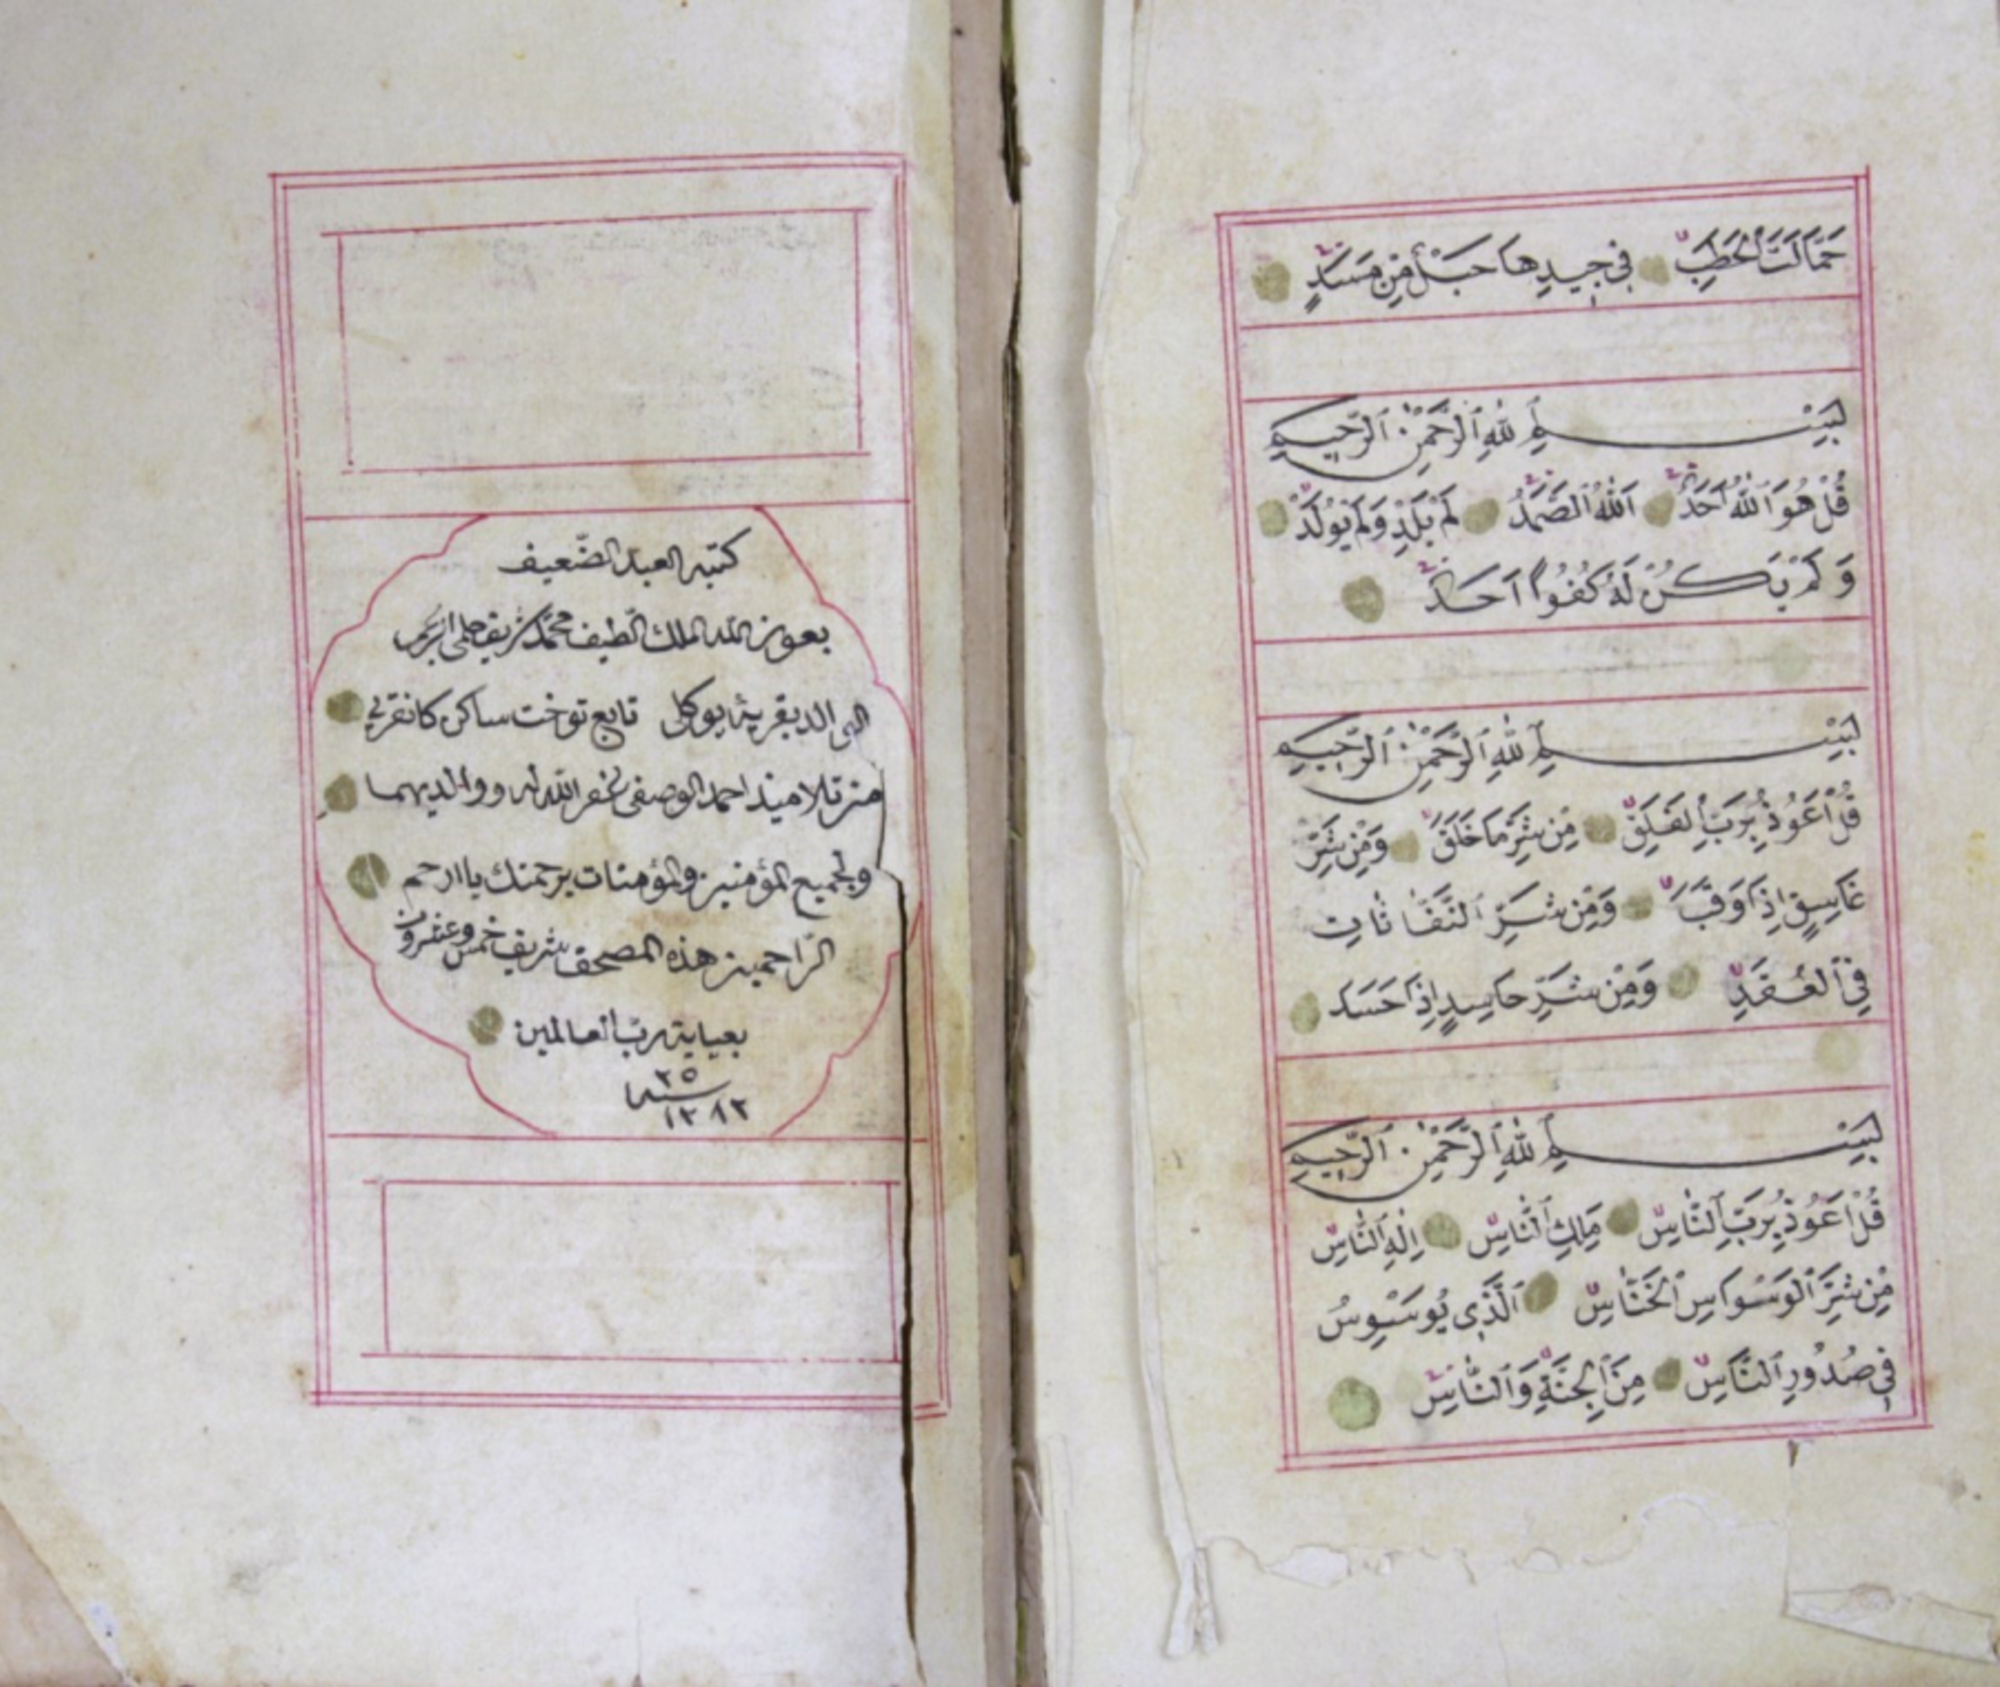 حَمَّالَتَ الْحَطَبِ فِي جِيدِهَا حَبْلٌ مِنْ مَسَدٍ
بِسْمِ اللهِ الرَّحْمٰنِ الرَّحِيمِ
قُلْ هُوَ اللهُ اَحَدٌ اَللهُ الصَّمَدُ لَمْ يَلِدْ وَلَمْ يُولَدْ
وَلَمْ يَكُنْ لَهُ كُفُوًا اَحَدٌ
بِسْمِ اللهِ الرَّحْمٰنِ الرَّحِيمِ
قُلْ اَعُوذُ بِرَبِّ الْفَلَقِ مِنْ شَرِّ مَا خَلَقَ وَمِنْ شَرِّ
غَاسِقٍ اِذَا وَقَبَ وَمِنْ شَرِّ النَّفَّاثَاتِ
فِي الْعُقَدِ وَمِنْ شَرِّ حَاسِدٍ اِذَا حَسَدَ
بِسْمِ اللهِ الرَّحْمٰنِ الرَّحِيمِ
قُلْ اَعُوذُ بِرَبِّ النَّاسِ مَلِكِ النَّاسِ اِلٰهِ النَّاسِ
مِنْ شَرِّ الْوَسْوَاسِ الْخَنَّاسِ اَلَّذِي يُوَسْوِسُ
فِي صُدُورِ النَّاسِ مِنَ الْجِنَّةِ وَالنَّاسِ
كتبه العبد الضّعيف
بعون الله الملك الطيف محمّد شريف
بقرية تابع توخت ساكن
من تلاميذ احمد الوصفى غفر الله له ووالديهما
ولجميع المؤمنين والمؤمنات برحمتك يا ارحم
الرّاحمين هذه المصحف شريف خمس وعشرون
بعناية ربّ العالمين
٢٥
سنه
١٢٨٢